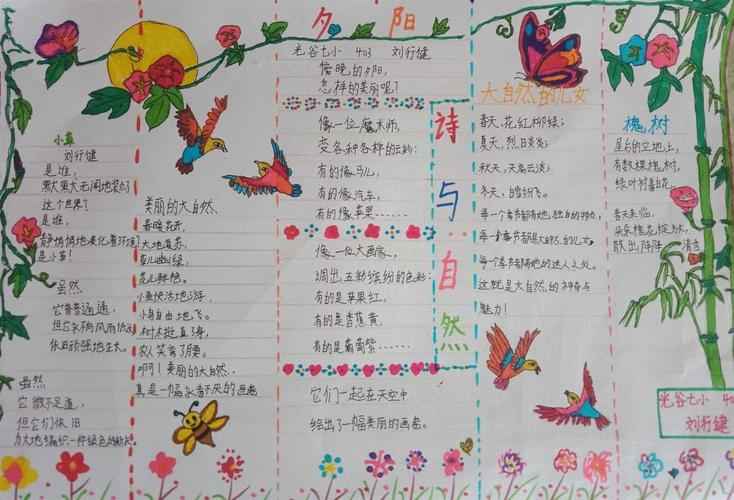 小草
刘行健
是谁,
默默无闻地装点
这个世界?
是谁,
静悄悄地美化着环境?
是小草!
虽然
它普普通通,
但它不怕风雨
依旧顽强地生长。
虽然
它微不足道,
但它们依旧
为大地编织一件绿色的
美丽的大自然
春暖花开,
大地复苏,
小鱼快活地游,
小鸟自由地飞。
树木挺直了身,
农人笑弯了腰。
啊!美丽的大自然..
真是一幅永不褪色的画卷
夕阳
光谷七小 403 刘行健
傍晚的夕阳,
怎样的美丽呢?
像一位魔术师,
变各种各样的云彩:
有的像马儿,
有的像汽车,
有的像苹果······
像一位大画家,
调出五彩缤纷的色彩:
有的是苹果红,
有的是香蕉黄,
有的是葡萄紫······
它们一起在天空中
绘出了一幅美丽的画卷。
诗与自然
大自然的儿女
春天,花红柳绿;
夏天,烈日炎炎;
秋天,天高云淡;
冬天,白雪纷飞。
每一个季节都有她独自的特点,
每一个季节都是大自然的儿女。
每个季节都有她的迷人之处。
这就是大自然的神奇与
魅力!
槐树
屋后的空地上,
有数棵槐树,
绿叶衬着花。
春天来临,
朵朵槐花绽放,
散出阵阵清香
光谷七小 403
刘行健